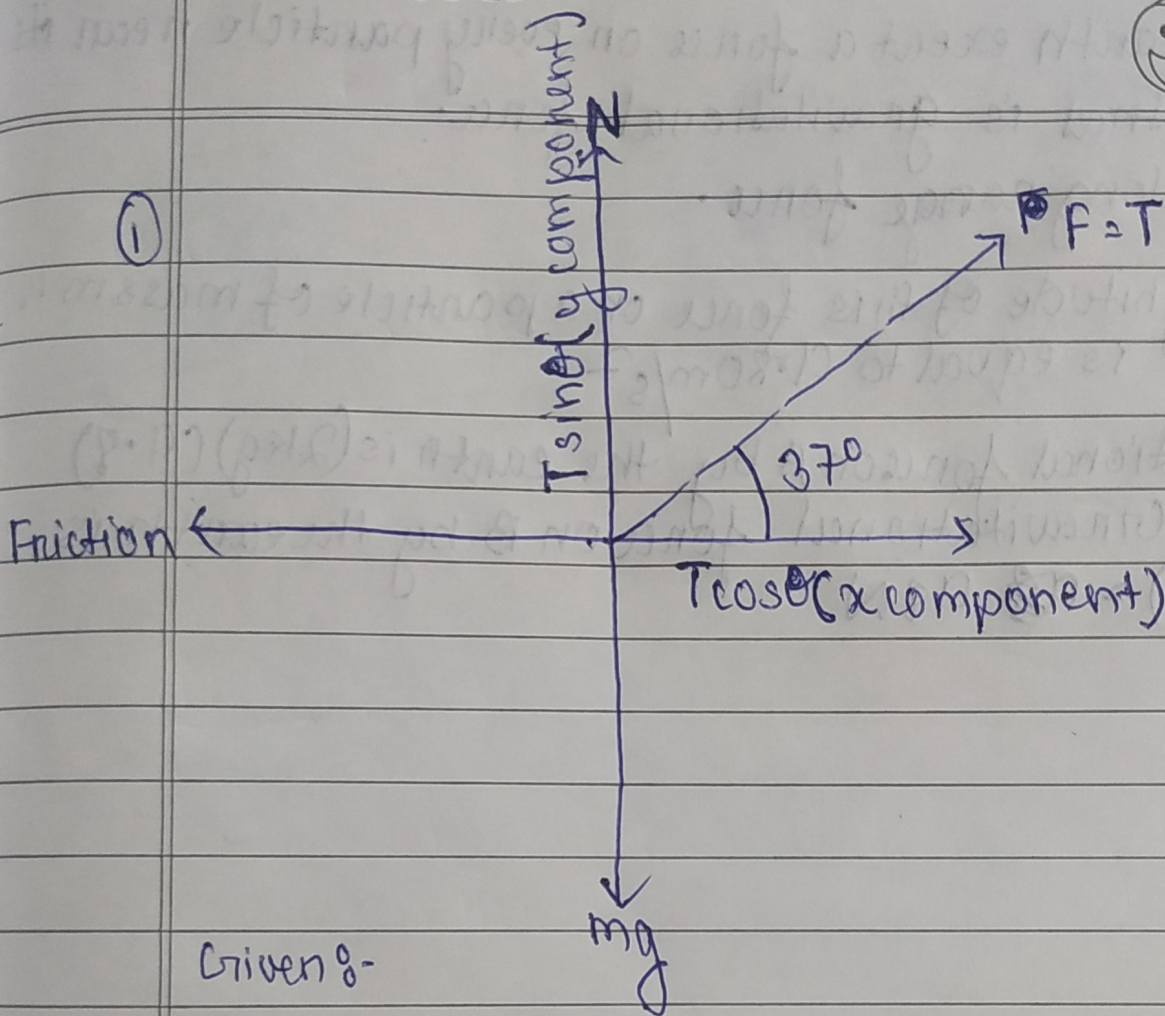 N
T sinθ (y component)
①
F = T
37°
Friction
Tcosθ (x component)
mg
Given :-